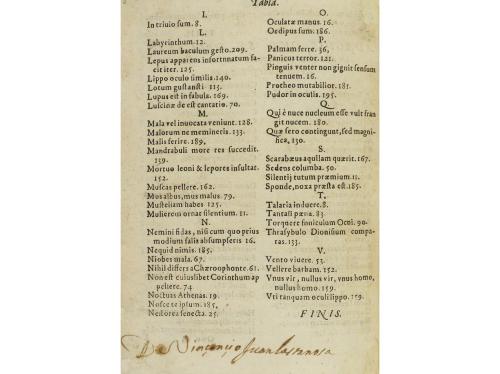 Tabla.
I.
In triuio sum. 8.
L.
Labyrinthum. 12.
Laureum baculum gesto. 209.
Lepus apparens infortunatum fa-
cit iter. 125.
Lippo oculo similis. 140.
Lotum gustasti 113.
Lupus est in fabula. 169.
Lusciniæ de est cantatio. 70.
M.
Mala vel inuocata veniunt. 128.
Malorum ne memineris. 133.
Malis ferire. 189.
Mandrabuli more res succedit.
139.
Mortuo leoni & lepores insultant.
152.
Muscas pellere. 162.
Mus albus, mus malus. 79.
Mustellam habes 125.
Mulierem ornat silentium. 11.
N.
Nemini fidas, nisi cum quo prius
modium salis absumpseris 16.
Nequid nimis. 185.
Niobes mala. 67.
Nihil differs a Chærephonte. 61.
Non est cuiuslibet Corinthum ap
pellere. 74
Noctuas Athenas. 19.
Nosce te ipsum. 185.
Nestorea senecta. 25.
O.
Oculatæ manus. 16.
Oedipus sum. 186.
P.
Palmam ferre. 36,
Panicus terror. 121.
Pinguis venter non gignit sensum
tenuem. 16.
Protheo mutabilior. 185.
Pudor in oculis. 195.
Q.
Qui è nuce nucleum esse vult fran
git nucem. 180.
Quæ sero contingunt, sed magni-
fica. 130.
S.
Scarabæus aquilam quærit. 167.
Sedens columba. 50.
Silentij tutum præmium. 11.
Sponde, noxa præsto est. 185.
T.
Talaria induere. 8.
Tantali pœna. 83.
Torquere finniculum Ocni. 90.
Thrasybulo Dionisium compa-
ras. 133.
V.
Vento viuere. 53.
Vellere barbam. 152.
Vnus vir, nullus vir, vnus homo,
nullus homo. 159.
Vti tanquam oculi lippo. 159.
FINIS.
De Vincencio Juan Lastanosa